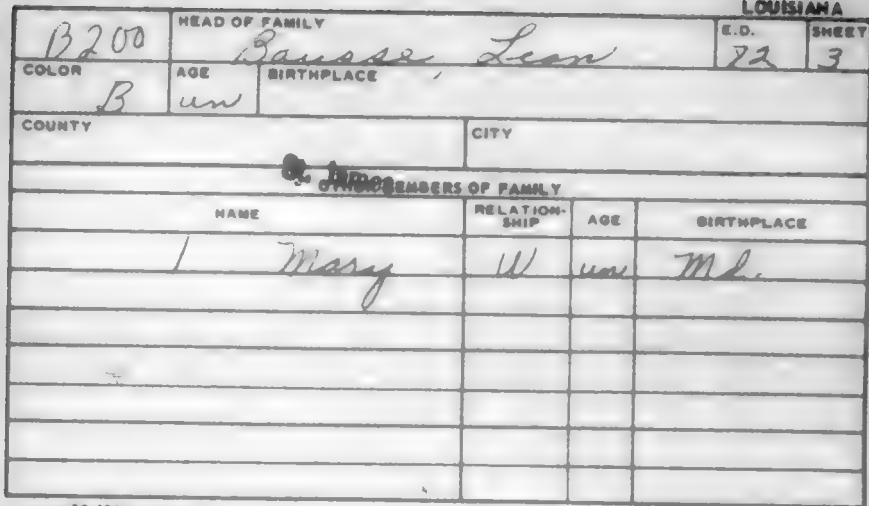 LOUISIANA
B200 HEAD OF FAMILY Bausse, Lean E.D. 72 SHEET 3
COLOR B AGE un BIRTHPLACE
COUNTY CITY
St. James
MEMBERS OF FAMILY
NAME RELATION-SHIP AGE BIRTHPLACE
1 Mary W un Md.